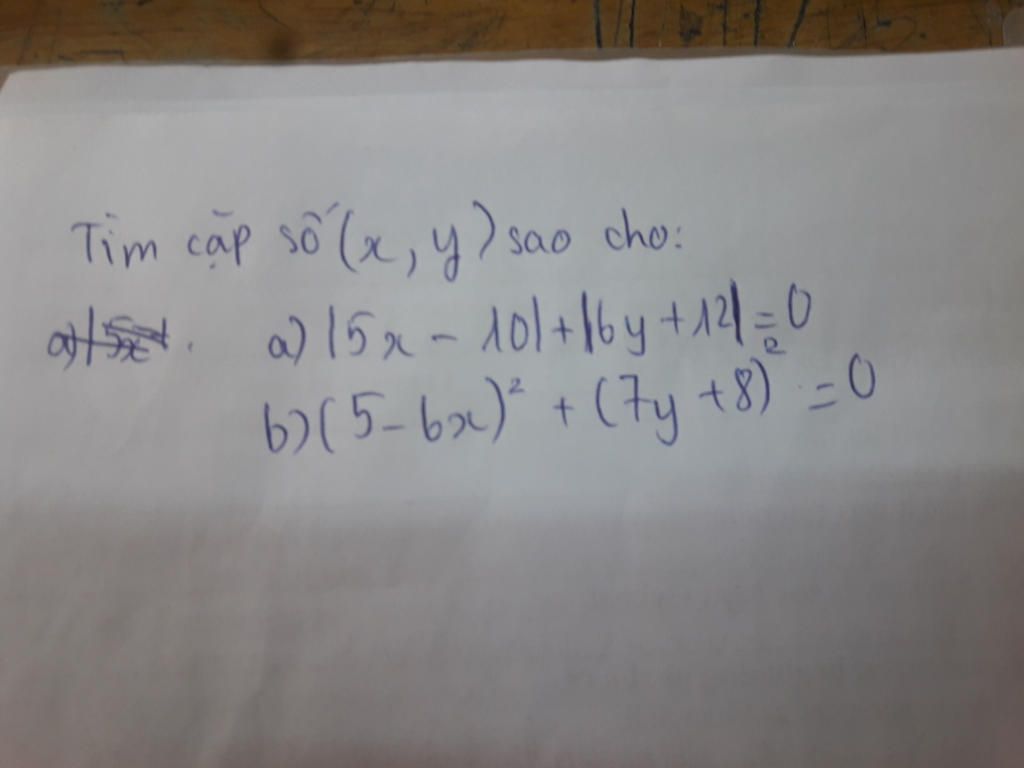 Tìm cặp số (x, y) sao cho:
a) |5x - 10| + |6y + 12| = 0
b) (5 - 6x)² + (7y + 8)² = 0